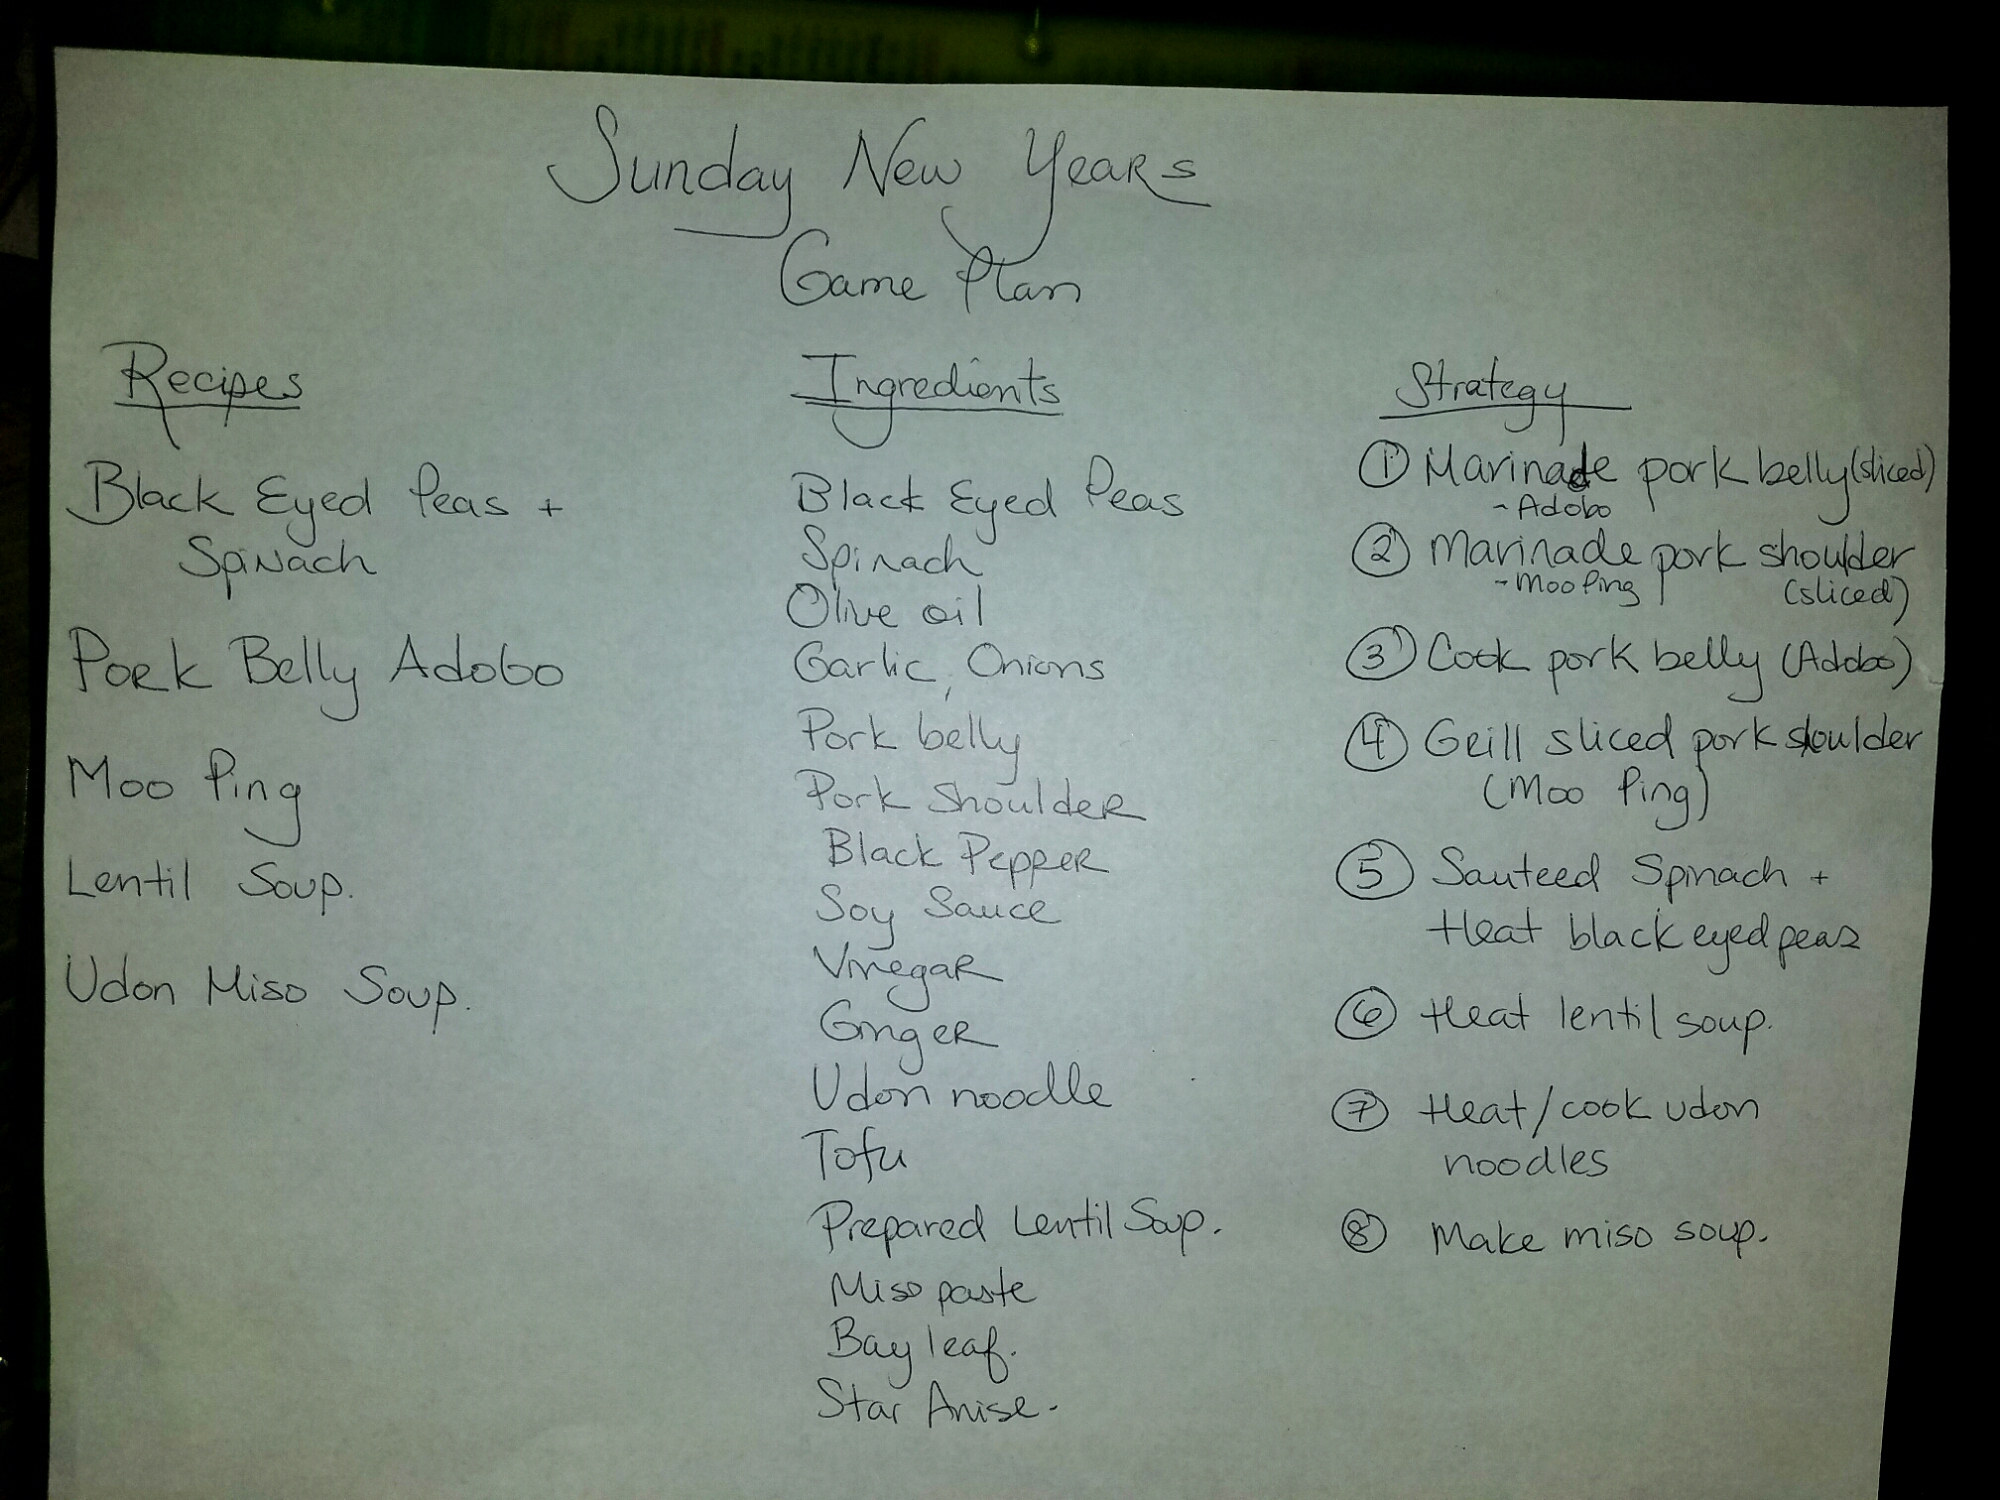 Sunday New Years
Game Plan
Recipes
Black Eyed Peas +
Spinach
Pork Belly Adobo
Moo Ping
Lentil Soup.
Udon Miso Soup.
Ingredients
Black Eyed Peas
Spinach
Olive oil
Garlic, Onions
Pork belly
Pork Shoulder
Black Pepper
Soy Sauce
Vinegar
Ginger
Udon noodle
Tofu
Prepared Lentil Soup.
Miso paste
Bay leaf.
Star Anise.
Strategy
① Marinade pork belly (sliced)
- Adobo
② Marinade pork shoulder
- Moo Ping (sliced)
③ Cook pork belly (Adobo)
④ Grill sliced pork shoulder
(Moo Ping)
⑤ Sauteed Spinach +
Heat black eyed peas
⑥ Heat lentil soup.
⑦ Heat/cook udon
noodles
⑧ Make miso soup.